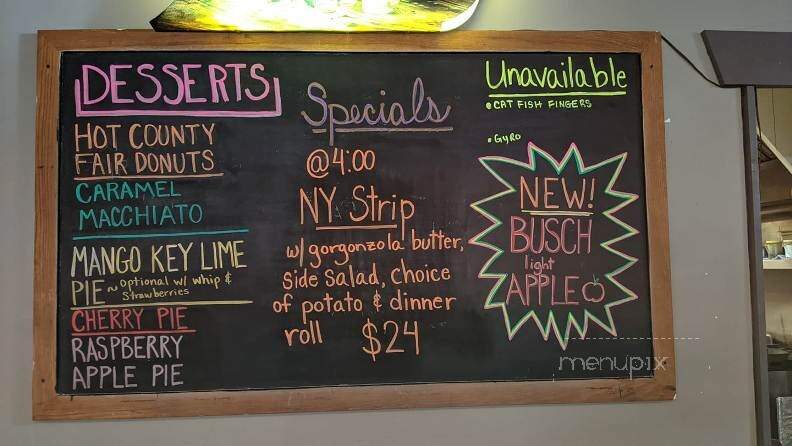 DESSERTS
HOT COUNTY
FAIR DONUTS
CARAMEL
MACCHIATO
MANGO KEY LIME
PIE ~ optional w/ whip &
Strawberries
CHERRY PIE
RASPBERRY
APPLE PIE
Specials
@4:00
NY Strip
w/ gorgonzola butter,
side salad, choice
of potato & dinner
roll $24
Unavailable
• CAT FISH FINGERS
• GYRO
NEW!
BUSCH
light
APPLE
menupix